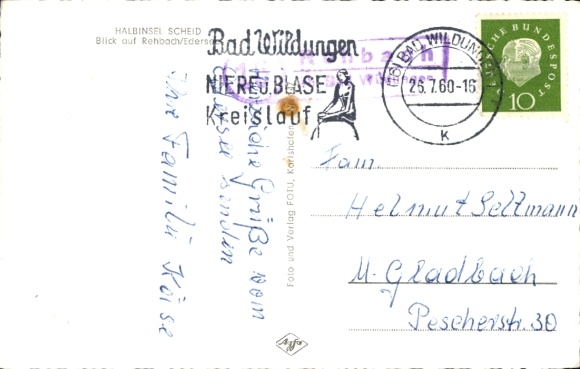 HALBINSEL SCHEID
Blick auf Rehbach/Edersee
Bad Wildungen
NIERE U. BLASE
Kreislauf
Rehbach
(16) BAD WILDUNGEN
26.7.60-16
k
DEUTSCHE BUNDESPOST
10
Herzliche Grüße vom
Edersee senden
Ihre Familie Käse
Foto und Verlag FOTU, Karlshafen
Fam.
Helmut Seltmann
M. Gladbach
Pescherstr. 30
Agfa